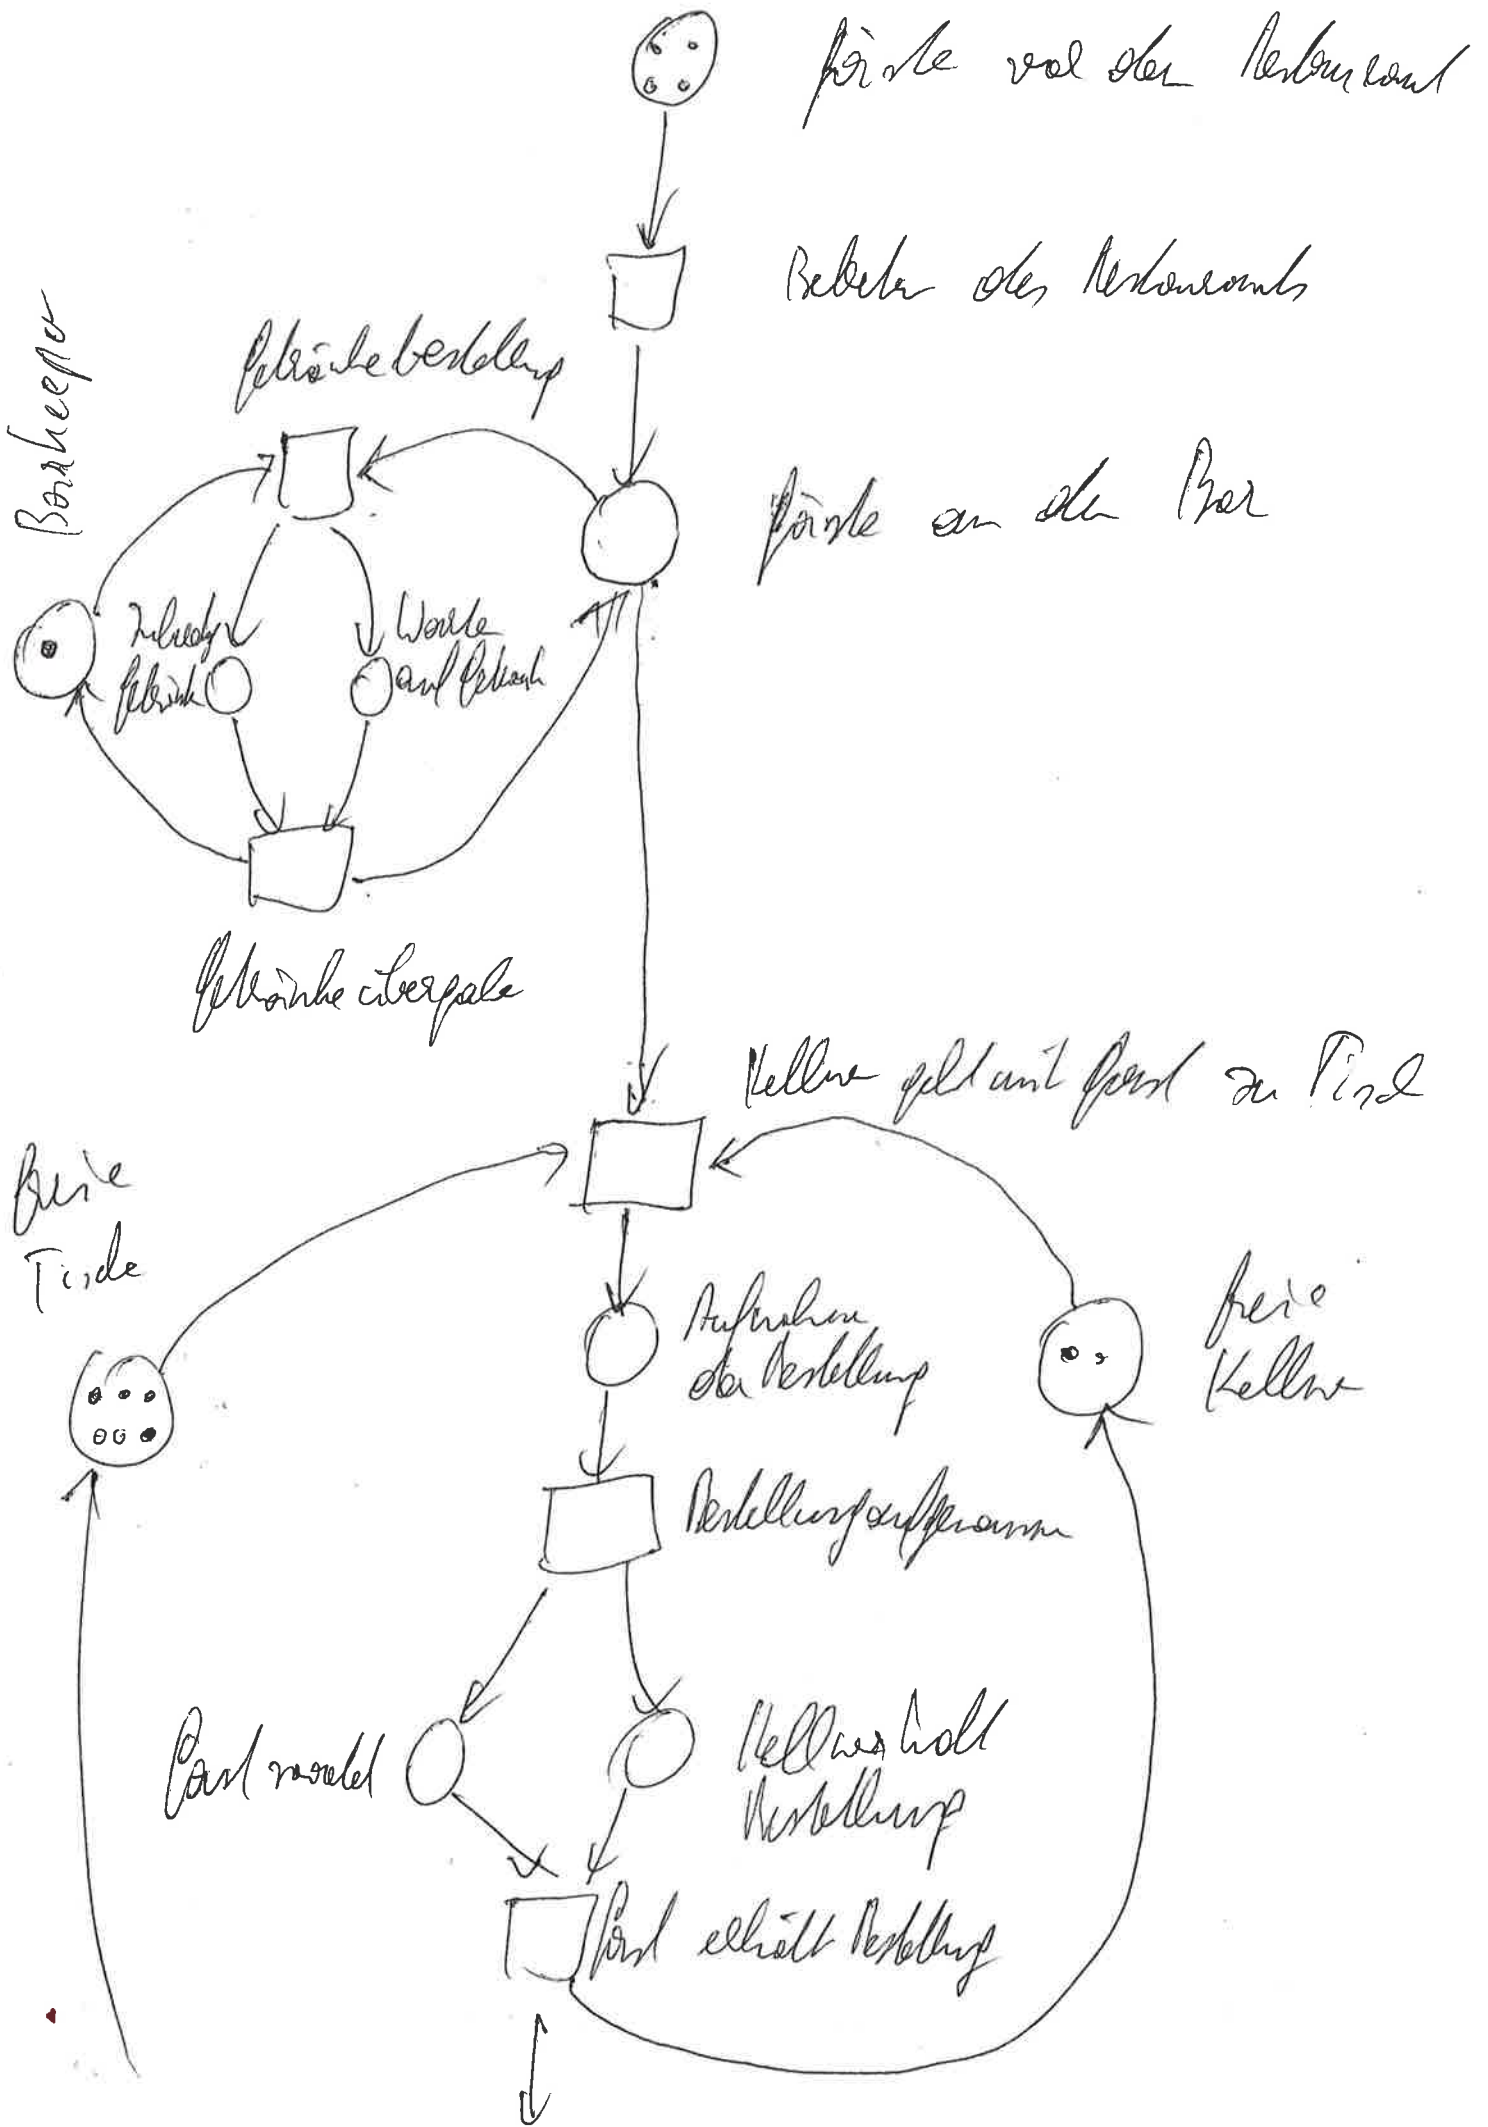 Gäste vor dem Restaurant
Betreten des Restaurants
Barkeeper
Getränkebestellung
Gäste an der Bar
Zubereitg
Getränk
Warte
auf Getränk
Getränkeübergabe
Kellner geht mit Gast zu Tisch
freie
Tische
Aufnahme
der Bestellung
freie
Kellner
Bestellung aufgenommen
Gast wartet
Kellner holt
Bestellung
Gast erhält Bestellung